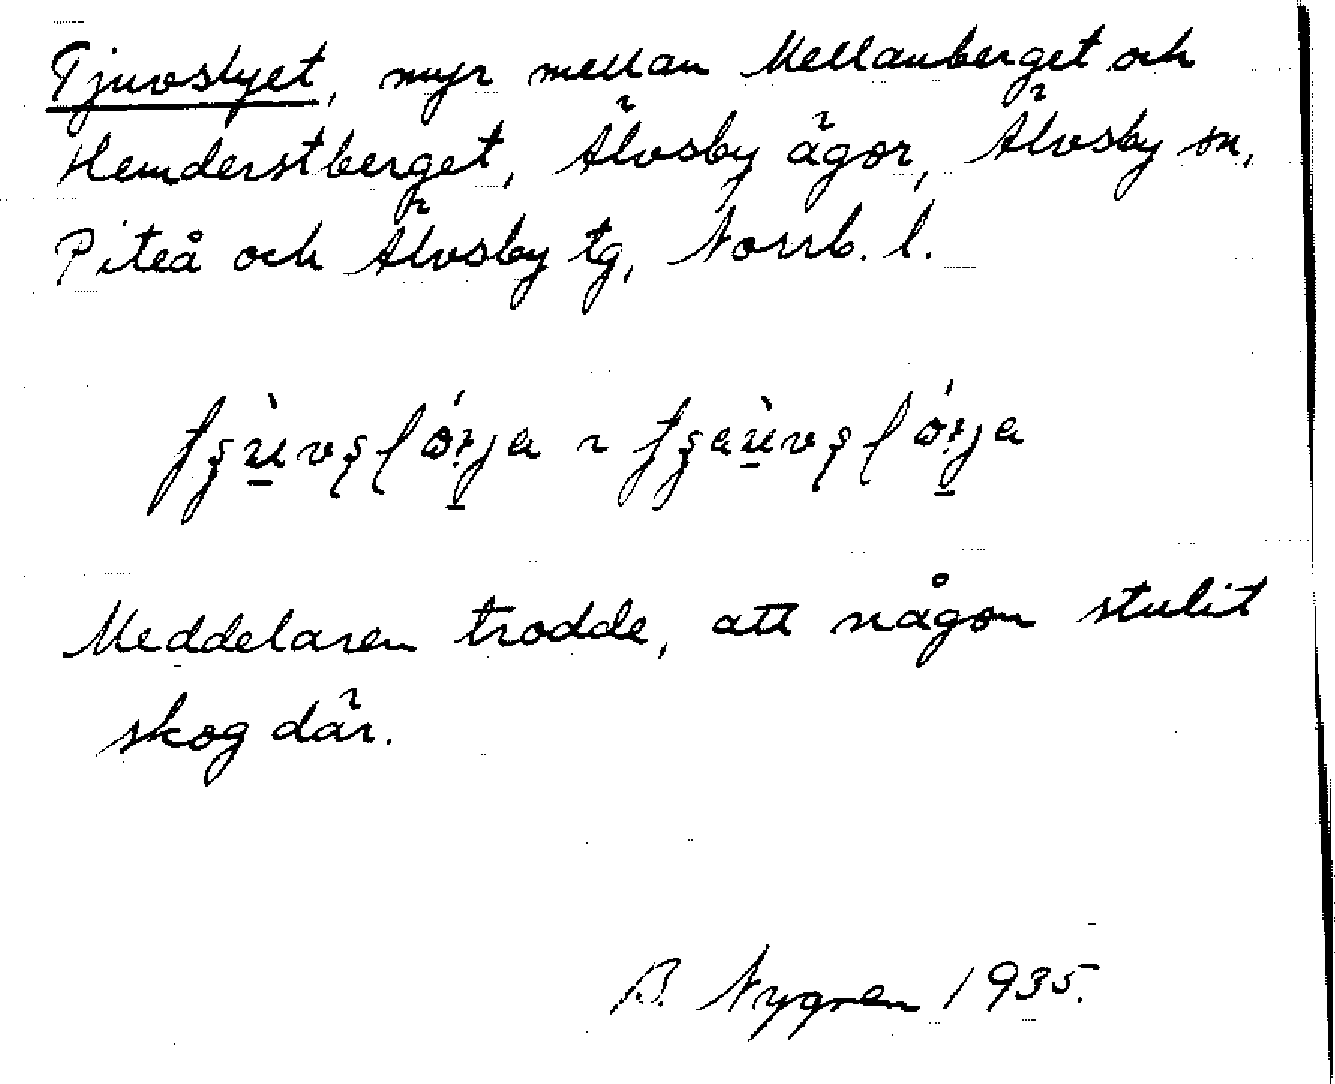 Tjuvslyet, myr mellan Mellanberget och
Hemderstberget, Älvsby ägor, Älvsby sn,
Piteå och Älvsby tg, Norrb. l.
Meddelaren trodde, att någon stulit
skog där.
B. Nygren 1935.